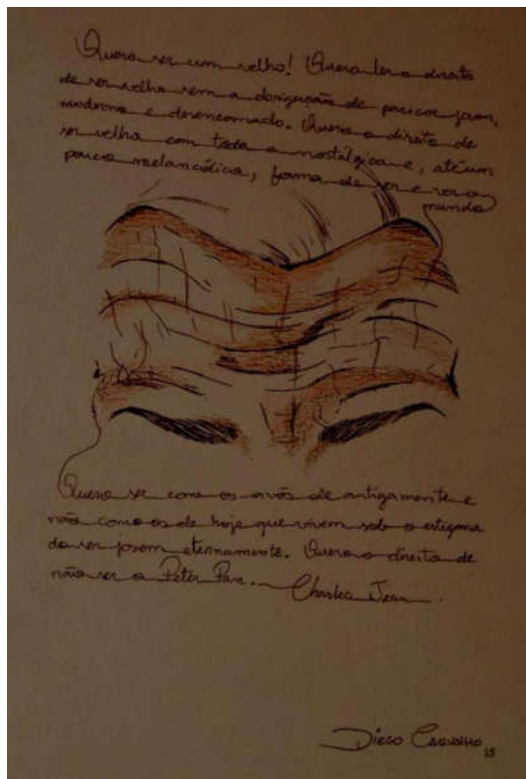 Quero ser um velho! Quero ter o direito
de ser velho sem a obrigação de parecer jovem,
moderno e desencarnado. Quero o direito de
ser velho com toda a nostálgica e, até um
pouco melancólica, forma de ser e ver o
mundo
Quero ser como os avós de antigamente e
não como os de hoje que vivem sob o estigma
de ser jovem eternamente. Quero o direito de
não ser o Peter Pan. Charles Jean.
Diego Carvalho 15